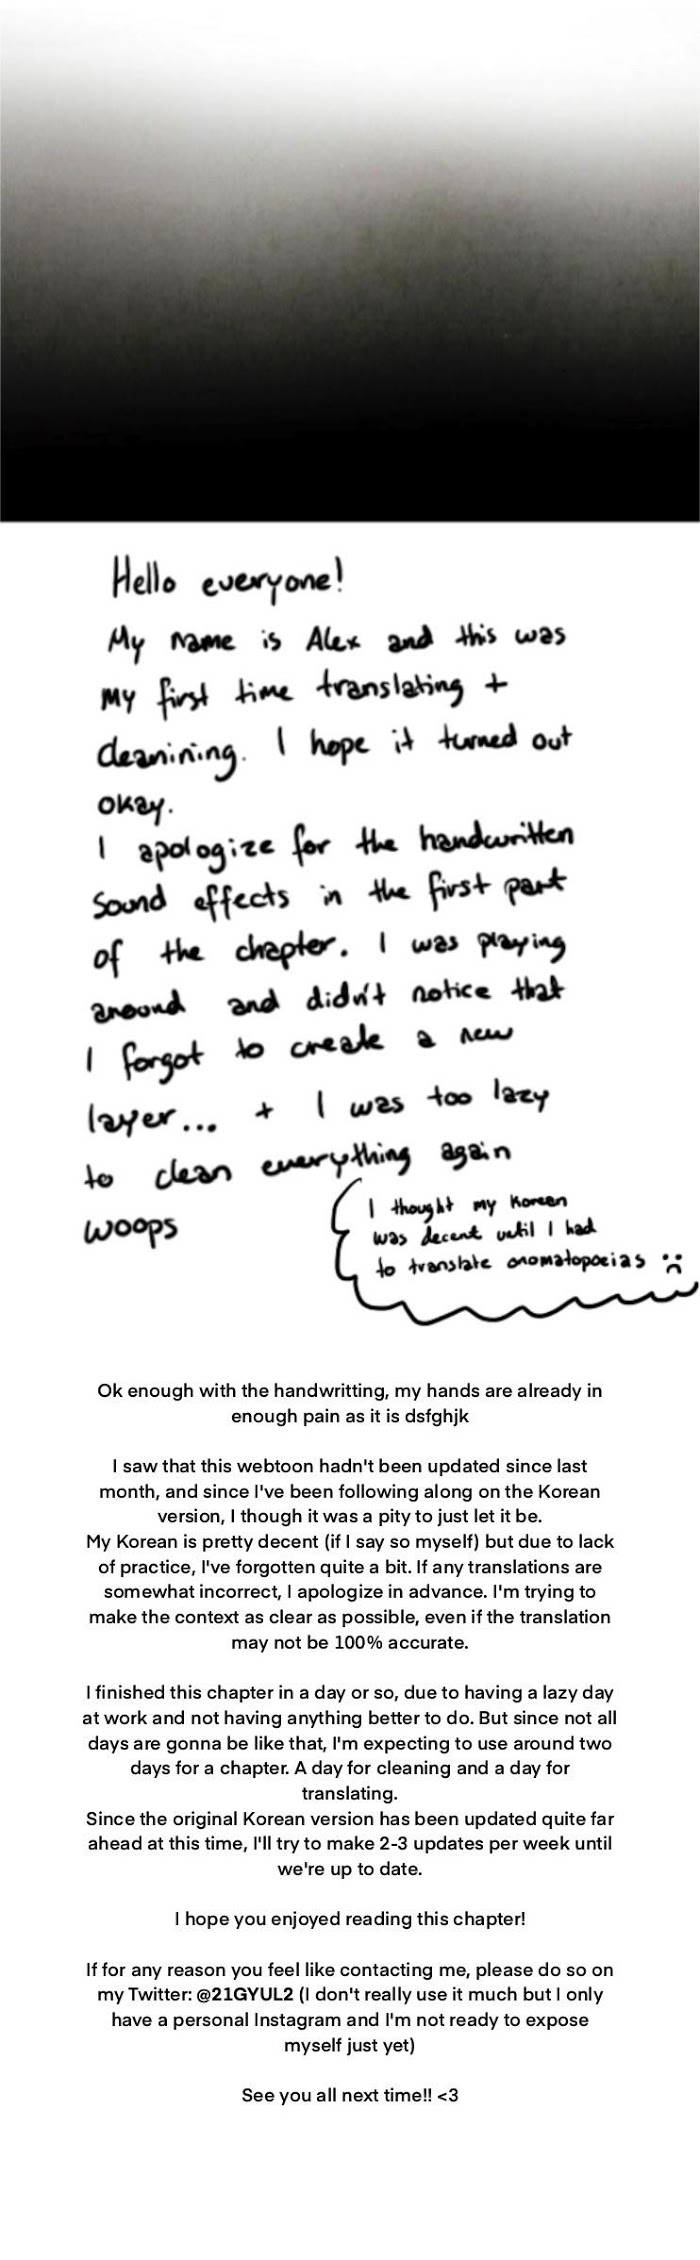 Hello everyone!
My name is Alex and this was
my first time translating +
cleanining. I hope it turned out
okay.
I apologize for the handwritten
sound effects in the first part
of the chapter. I was playing
around and didn't notice that
I forgot to create a new
layer... + I was too lazy
to clean everything again
woops
I thought my Korean
was decent until I had
to translate onomatopoeias :(
Ok enough with the handwritting, my hands are already in
enough pain as it is dsfghjk
I saw that this webtoon hadn't been updated since last
month, and since I've been following along on the Korean
version, I though it was a pity to just let it be.
My Korean is pretty decent (if I say so myself) but due to lack
of practice, I've forgotten quite a bit. If any translations are
somewhat incorrect, I apologize in advance. I'm trying to
make the context as clear as possible, even if the translation
may not be 100% accurate.
I finished this chapter in a day or so, due to having a lazy day
at work and not having anything better to do. But since not all
days are gonna be like that, I'm expecting to use around two
days for a chapter. A day for cleaning and a day for
translating.
Since the original Korean version has been updated quite far
ahead at this time, I'll try to make 2-3 updates per week until
we're up to date.
I hope you enjoyed reading this chapter!
If for any reason you feel like contacting me, please do so on
my Twitter: @21GYUL2 (I don't really use it much but I only
have a personal Instagram and I'm not ready to expose
myself just yet)
See you all next time!! <3